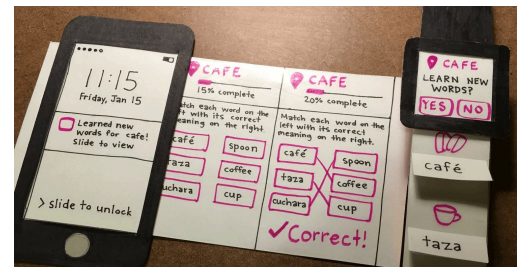 11:15
Friday, Jan 15
Learned new
words for cafe!
Slide to view
> slide to unlock
CAFE
15% complete
Match each word on the
left with its correct
meaning on the right.
café
spoon
taza
coffee
cuchara
cup
CAFE
20% complete
Match each word on the
left with its correct
meaning on the right.
café
spoon
taza
coffee
cuchara
cup
✓Correct!
CAFE
LEARN NEW
WORDS?
YES
NO
café
taza